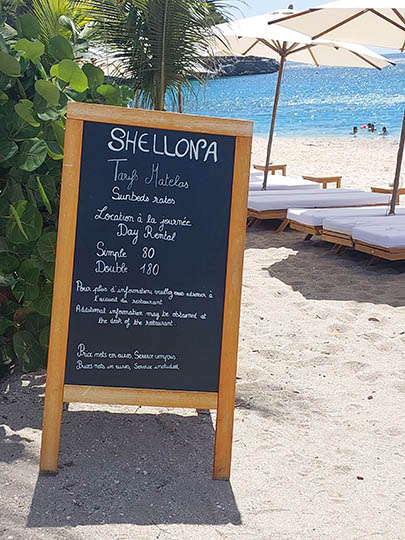 SHELLONA
Tarifs Matelas
Sunbeds rates
Location à la journée
Day Rental
Simple 80
Double 180
Pour plus d'informations veuillez vous adresser à
l'accueil du restaurant
Additional information may be obtained at
the desk of the restaurant
Prix nets en euros, Service compris
Prices nets in euros, Service included